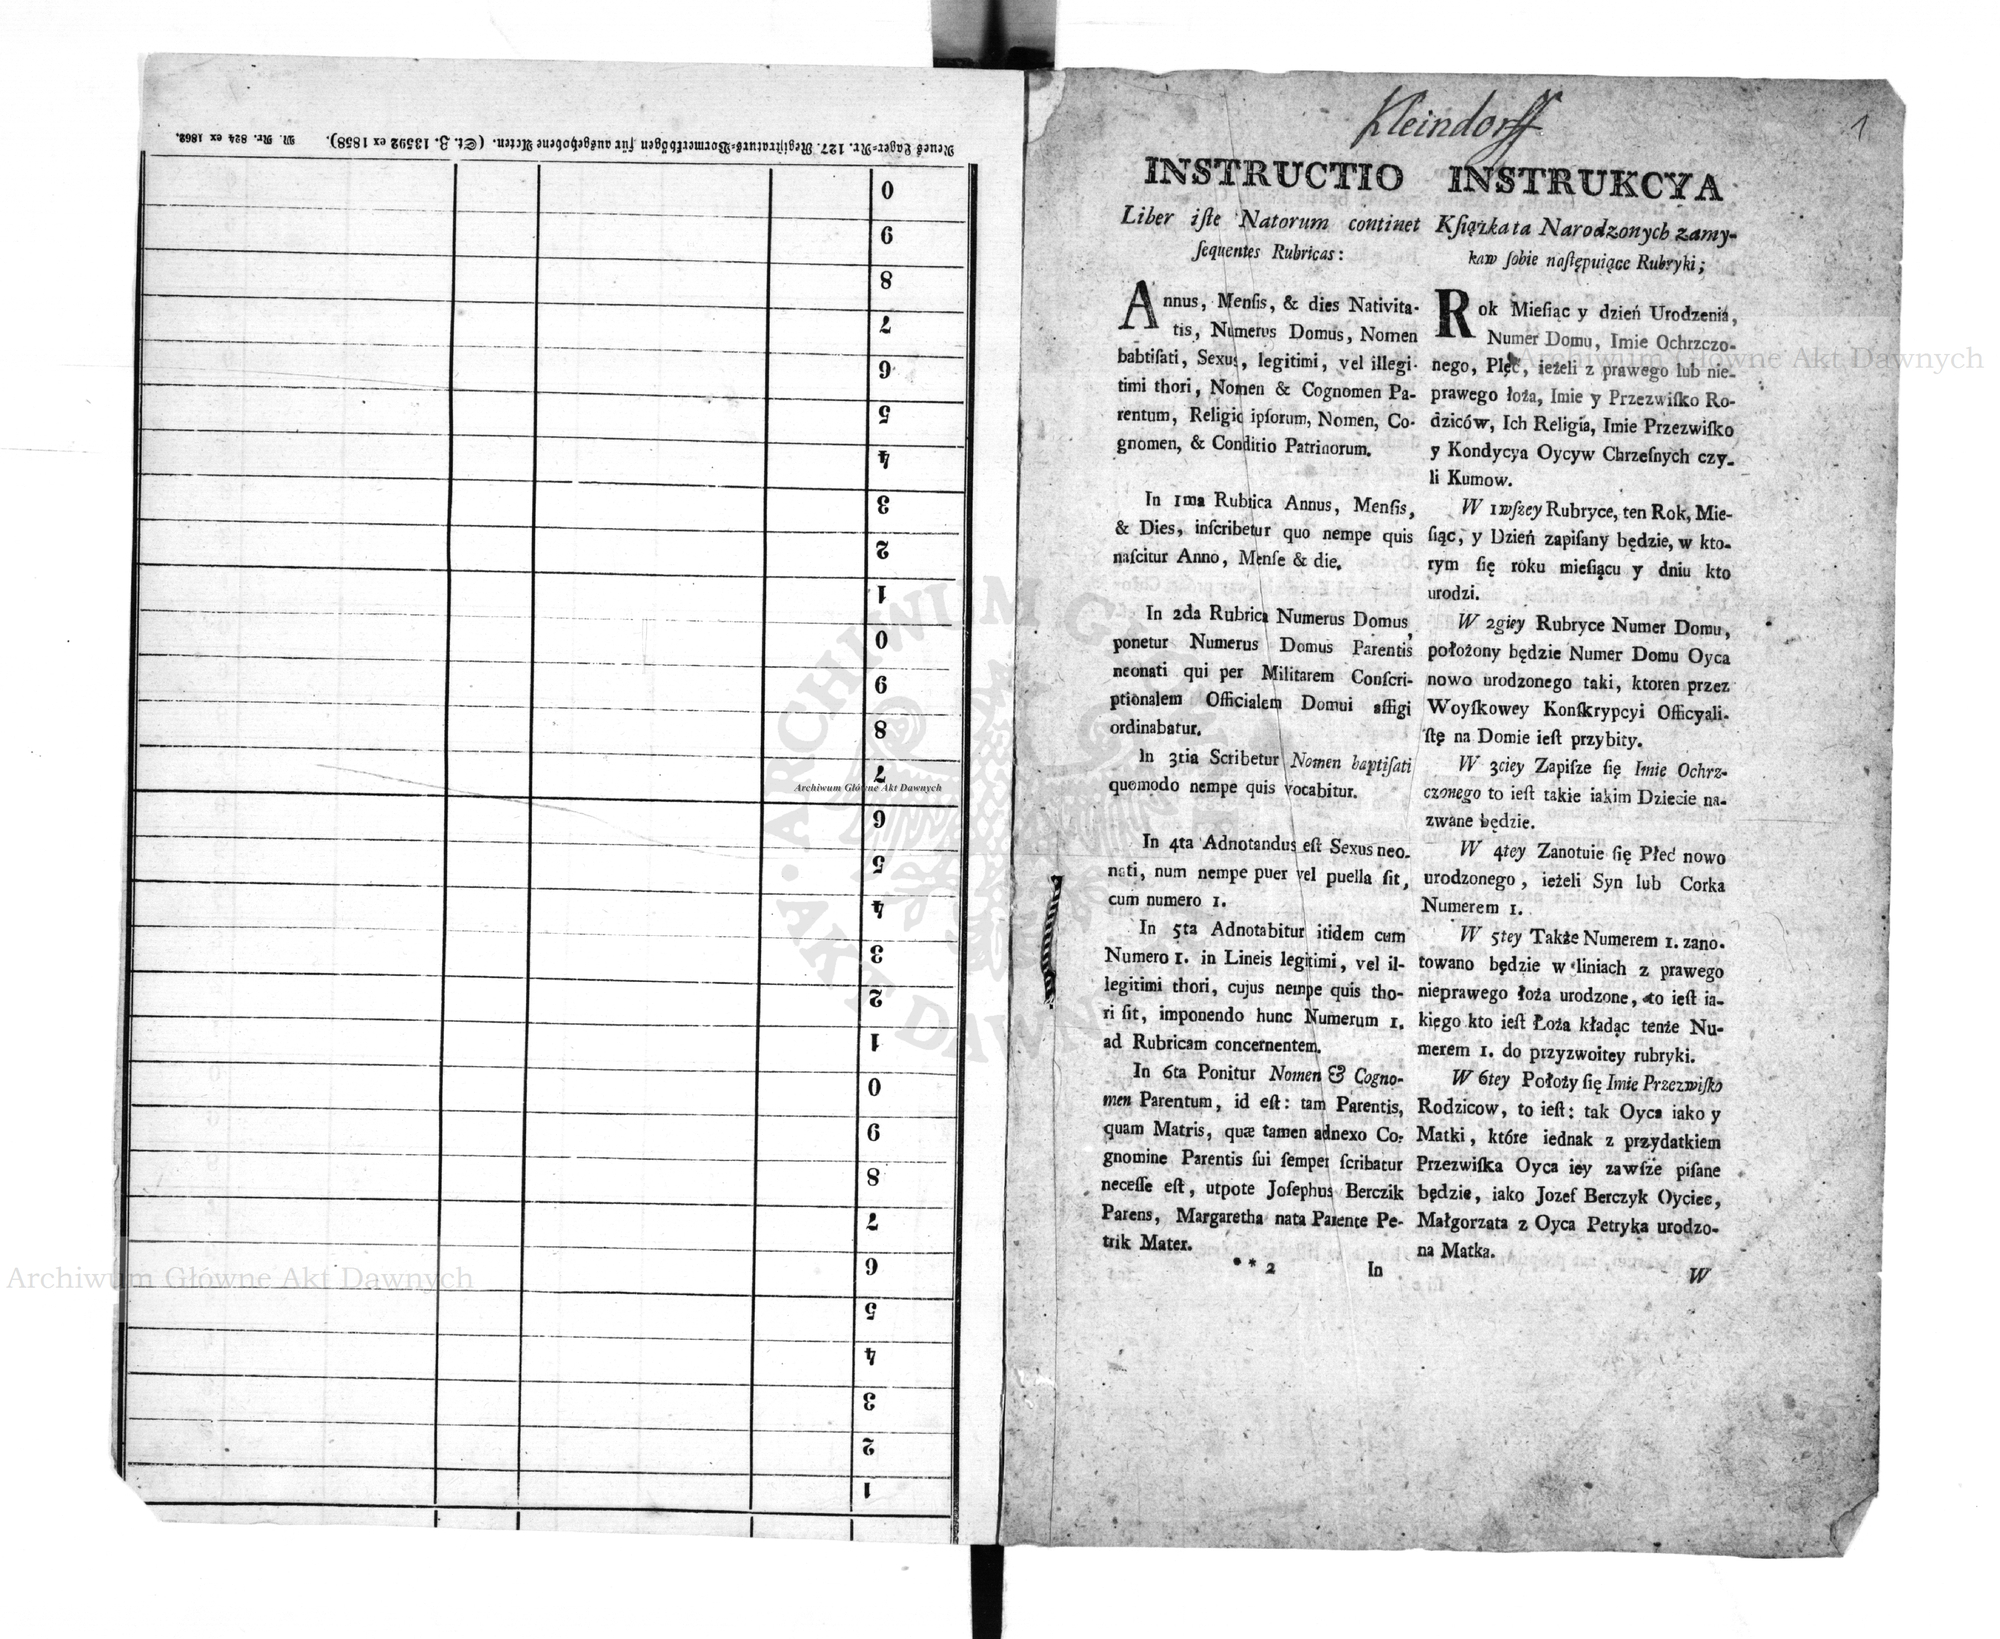 Neues Lager=Nr. 127. Registraturs=Vormerkbögen für ausgehobene Acten. (St. Z. 13592 ex 1858). M. Nr. 824 ex 1862.
0
9
8
7
6
5
4
3
2
1
0
9
8
7
6
5
4
3
2
1
0
9
8
7
6
5
4
3
2
1
Kleindorff
1
INSTRUCTIO
Liber iſte Natorum continet
ſequentes Rubricas:
Annus, Menſis, & dies Nativita-
tis, Numerus Domus, Nomen
babtiſati, Sexus, legitimi, vel illegi-
timi thori, Nomen & Cognomen Pa-
rentum, Religio ipſorum, Nomen, Co-
gnomen, & Conditio Patrinorum.
In 1ma Rubrica Annus, Menſis,
& Dies, inſcribetur quo nempe quis
naſcitur Anno, Menſe & die.
In 2da Rubrica Numerus Domus,
ponetur Numerus Domus Parentis
neonati qui per Militarem Conſcri-
ptionalem Officialem Domui affigi
ordinabatur.
In 3tia Scribetur Nomen baptiſati
quomodo nempe quis vocabitur.
In 4ta Adnotandus eſt Sexus neo-
nati, num nempe puer vel puella ſit,
cum numero 1.
In 5ta Adnotabitur itidem cum
Numero 1. in Lineis legitimi, vel il-
legitimi thori, cujus nempe quis tho-
ri ſit, imponendo hunc Numerum 1.
ad Rubricam concernentem.
In 6ta Ponitur Nomen & Cogno-
men Parentum, id eſt: tam Parentis,
quam Matris, quæ tamen adnexo Co-
gnomine Parentis ſui ſemper ſcribatur
neceſſe eſt, utpote Joſephus Berczik
Parens, Margaretha nata Parente Pe-
trik Mater.
* * 2 In
INSTRUKCYA
Kſiążka ta Narodzonych zamy-
kaw ſobie naſtępuiące Rubryki;
Rok Mieſiąc y dzień Urodzenia,
Numer Domu, Imie Ochrzczo-
nego, Płeć, ieżeli z prawego lub nie-
prawego łoża, Imie y Przezwiſko Ro-
dziców, Ich Religia, Imie Przezwiſko
y Kondycya Oycyw Chrzeſnych czy-
li Kumow.
W 1wſzey Rubryce, ten Rok, Mie-
ſiąc, y Dzień zapiſany będzie, w kto-
rym ſię roku mieſiącu y dniu kto
urodzi.
W 2giey Rubryce Numer Domu,
położony będzie Numer Domu Oyca
nowo urodzonego taki, ktoren przez
Woyſkowey Konſkrypcyi Officyali-
ſtę na Domie ieſt przybity.
W 3ciey Zapiſze ſię Imie Ochrz-
czonego to ieſt takie iakim Dziecie na-
zwane będzie.
W 4tey Zanotuie ſię Płeć nowo
urodzonego, ieżeli Syn lub Corka
Numerem 1.
W 5tey Także Numerem 1. zano-
towano będzie w liniach z prawego
nieprawego łoża urodzone, to ieſt ia-
kiego kto ieſt Łoża kładąc tenże Nu-
merem 1. do przyzwoitey rubryki.
W 6tey Położy ſię Imie Przezwiſko
Rodzicow, to ieſt: tak Oyca iako y
Matki, które iednak z przydatkiem
Przezwiſka Oyca iey zawſze piſane
będzie, iako Jozef Berczyk Oyciec,
Małgorzata z Oyca Petryka urodzo-
na Matka.
W
Archiwum Główne Akt Dawnych
Archiwum Główne Akt Dawnych
Archiwum Główne Akt Dawnych